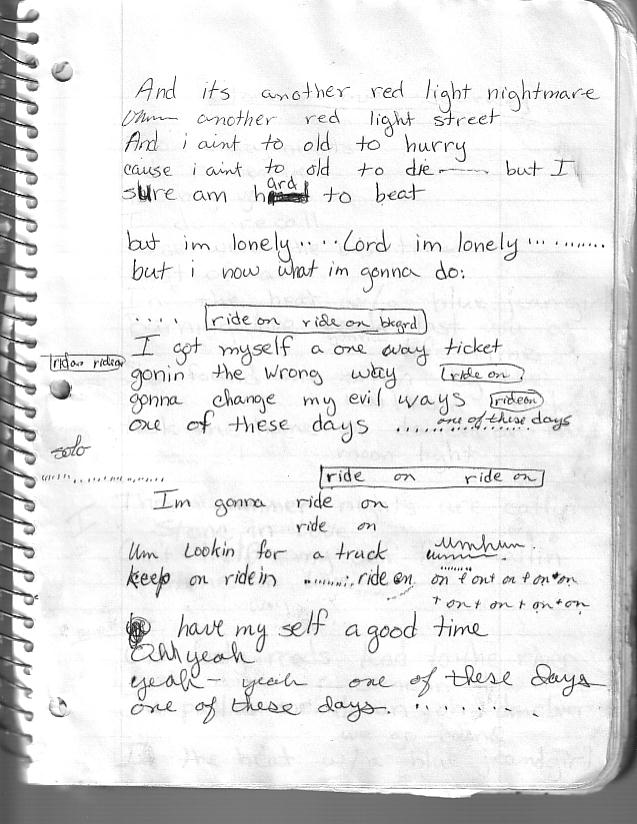 And its another red light nightmare
another red light street
And i aint to old to hurry
cause i aint to old to die——— but I
sure am hard to beat
but im lonely.....Lord im lonely............
but i now what im gonna do:
.... ride on ride on
I got myself a one way ticket
ridon rideon
gonin the wrong way ride on
gonna change my evil ways rideon
one of these days ........ one of these days
solo
...................
ride on ride on
Im gonna ride on
ride on
Um Lookin for a truck umhum
keep on ridein ........ride on on + on + on + on + on
+ on + on + on + on
have my self a good time
Ohh yeah
yeah - yeah one of these days
one of these days. ........